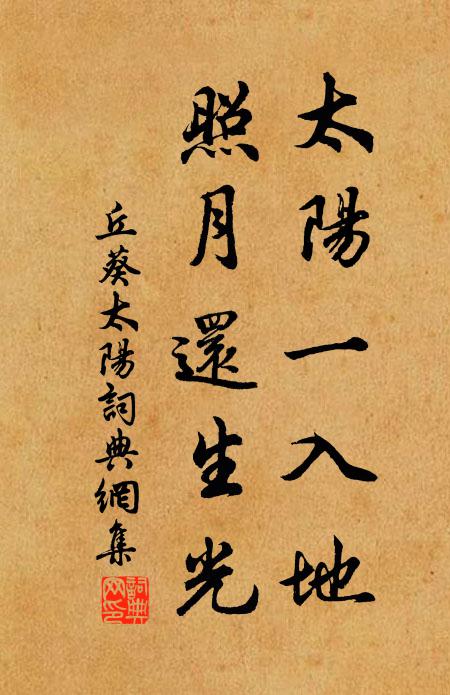 太陽一入地
照月還生光
丘葵太陽詞典網集
詞典網印